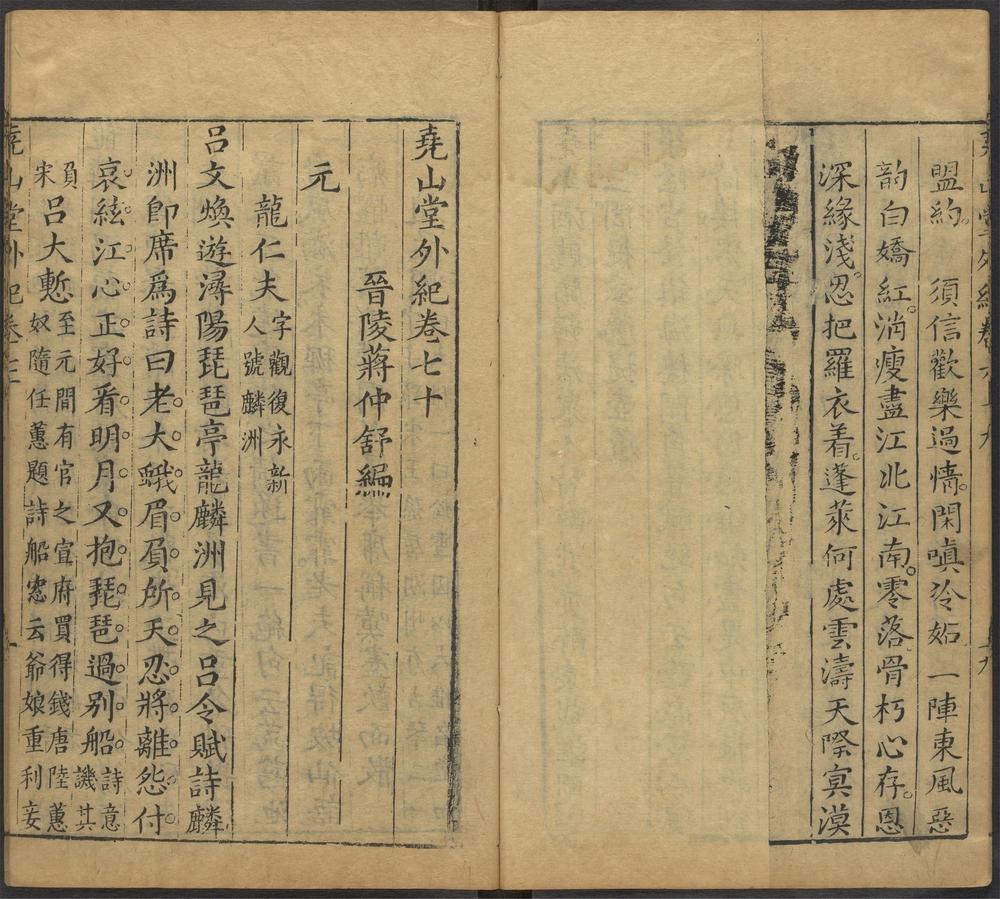 盟約。須信歡樂過情。閑嗔冷妬一陣東風惡
韵白嬌紅。消瘦盡江北江南。零落骨朽心存。恩
深緣淺。忍把羅衣着。蓬萊何處雲濤天際㝠漠
堯山堂外紀卷七十
晉陵蔣仲舒編
元
龍仁夫字觀復永新
人號麟洲
呂文煥遊潯陽琵琶亭龍麟洲見之呂令賦詩麟
洲卽席爲詩曰老大蛾眉負所天忍將離怨付
哀絃江心正好看明月又抱琵琶過別船詩意
譏其
負
宋呂大慙至元間有官之宜府買得錢唐陸蕙
奴隨任蕙題詩船窓云爺娘重利妾
堯山堂外紀卷七十
一